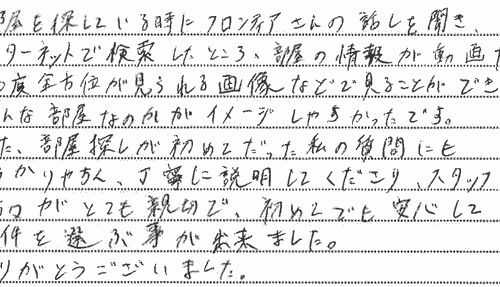 屋を探している時にフロンティアさんの話しを聞き、
ターネットで検索したところ、部屋の情報が動画
度全方位が見られる画像などで見ることができ
んな部屋なのかがイメージしやすかったです。
た、部屋探しが初めてだった私の質問にも
かりやすく、丁寧に説明してくださり、スタッフ
がとても親切で、初めてでも安心して
件を選ぶ事が出来ました。
りがとうございました。